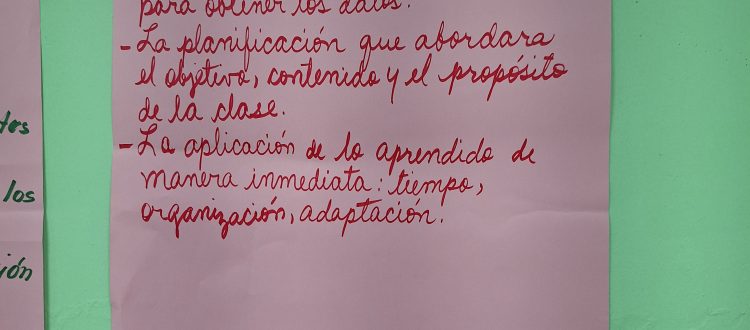 para obtener los datos.
- La planificación que abordara
el objetivo, contenido y el propósito
de la clase.
- La aplicación de lo aprendido de
manera inmediata: tiempo,
organización, adaptación.
los